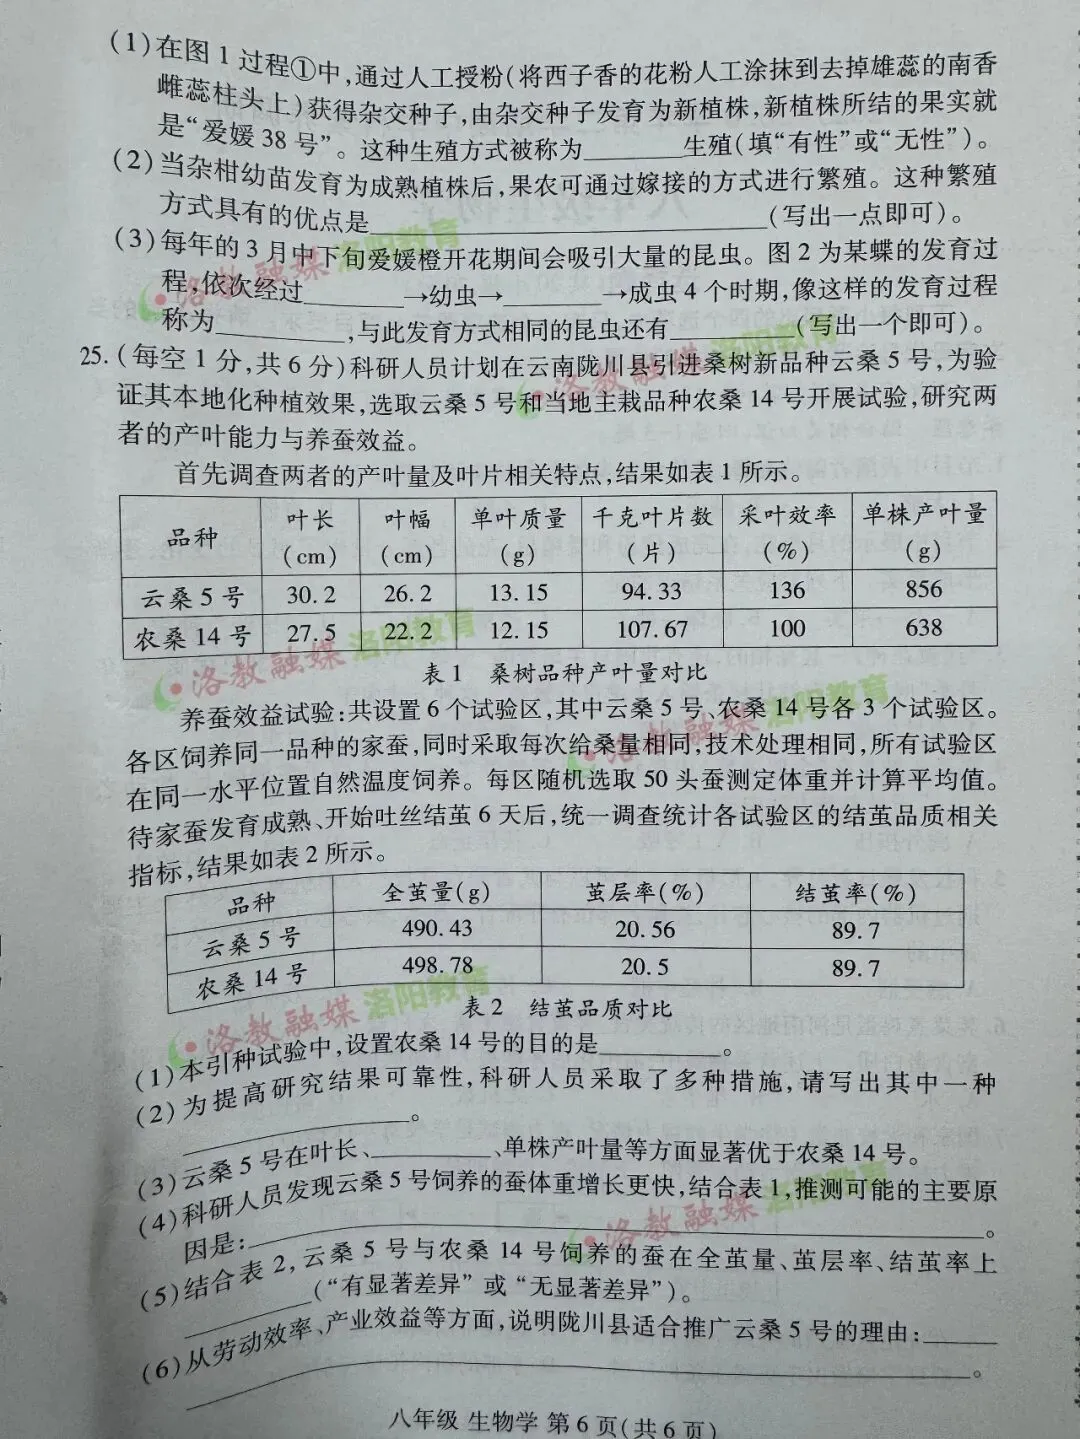 (1)在图1过程①中,通过人工授粉(将西子香的花粉人工涂抹到去掉雄蕊的南香
雌蕊柱头上)获得杂交种子,由杂交种子发育为新植株,新植株所结的果实就
是“爱媛38号”。这种生殖方式被称为______生殖(填“有性”或“无性”)。
(2)当杂柑幼苗发育为成熟植株后,果农可通过嫁接的方式进行繁殖。这种繁殖
方式具有的优点是______(写出一点即可)。
(3)每年的3月中下旬爱媛橙开花期间会吸引大量的昆虫。图2为某蝶的发育过
程,依次经过______→幼虫→______→成虫4个时期,像这样的发育过程
称为______,与此发育方式相同的昆虫还有______(写出一个即可)。
25.(每空1分,共6分)科研人员计划在云南陇川县引进桑树新品种云桑5号,为验
证其本地化种植效果,选取云桑5号和当地主栽品种农桑14号开展试验,研究两
者的产叶能力与养蚕效益。
首先调查两者的产叶量及叶片相关特点,结果如表1所示。
品种 叶长(cm) 叶幅(cm) 单叶质量(g) 千克叶片数(片) 采叶效率(%) 单株产叶量(g)
云桑5号 30.2 26.2 13.15 94.33 136 856
农桑14号 27.5 22.2 12.15 107.67 100 638
表1 桑树品种产叶量对比
养蚕效益试验:共设置6个试验区,其中云桑5号、农桑14号各3个试验区。
各区饲养同一品种的家蚕,同时采取每次给桑量相同,技术处理相同,所有试验区
在同一水平位置自然温度饲养。每区随机选取50头蚕测定体重并计算平均值。
待家蚕发育成熟、开始吐丝结茧6天后,统一调查统计各试验区的结茧品质相关
指标,结果如表2所示。
品种 全茧量(g) 茧层率(%) 结茧率(%)
云桑5号 490.43 20.56 89.7
农桑14号 498.78 20.5 89.7
表2 结茧品质对比
(1)本引种试验中,设置农桑14号的目的是______。
(2)为提高研究结果可靠性,科研人员采取了多种措施,请写出其中一种
______。
(3)云桑5号在叶长、______、单株产叶量等方面显著优于农桑14号。
(4)科研人员发现云桑5号饲养的蚕体重增长更快,结合表1,推测可能的主要原
因是:______。
(5)结合表2,云桑5号与农桑14号饲养的蚕在全茧量、茧层率、结茧率上
______(“有显著差异”或“无显著差异”)。
(6)从劳动效率、产业效益等方面,说明陇川县适合推广云桑5号的理由:______
______。
八年级 生物学 第6页(共6页)
洛教融媒 洛阳教育
洛教融媒 洛阳教育
洛教融媒 洛阳教育
洛教融媒 洛阳教育
洛教融媒 洛阳教育
洛教融媒 洛阳教育